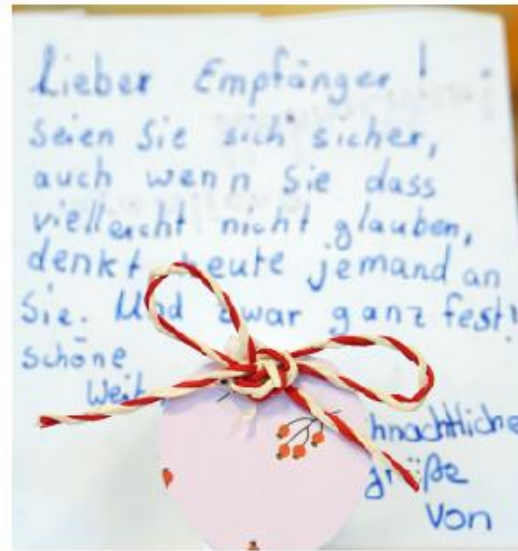 Lieber Empfänger!
Seien Sie sich sicher,
auch wenn Sie dass
vielleicht nicht glauben,
denkt heute jemand an
Sie. Und zwar ganz fest!
schöne
Weih
hnachtliche
größe
von